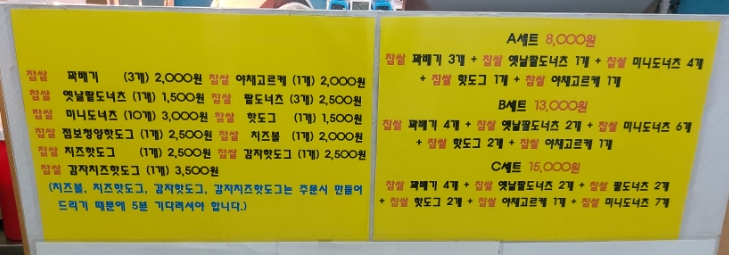 찹쌀 꽈배기 (3개) 2,000원 찹쌀 야채고르케 (1개) 2,000원
찹쌀 옛날팥도너츠 (1개) 1,500원 찹쌀 팥도너츠 (3개) 2,500원
찹쌀 미니도너츠 (10개) 3,000원 찹쌀 핫도그 (1개) 1,500원
찹쌀 점보청양핫도그 (1개) 2,500원 찹쌀 치즈볼 (1개) 2,000원
찹쌀 치즈핫도그 (1개) 2,500원 찹쌀 감자핫도그 (1개) 2,500원
찹쌀 감자치즈핫도그 (1개) 3,500원
(치즈볼, 치즈핫도그, 감자핫도그, 감자치즈핫도그는 주문시 만들어
드리기 때문에 5분 기다려셔야 합니다.)
A세트 8,000원
찹쌀 꽈배기 3개 + 찹쌀 옛날팥도너츠 1개 + 찹쌀 미니도너츠 4개
+ 찹쌀 핫도그 1개 + 찹쌀 야채고르케 1개
B세트 13,000원
찹쌀 꽈배기 4개 + 찹쌀 옛날팥도너츠 2개 + 찹쌀 미니도너츠 6개
+ 찹쌀 핫도그 2개 + 찹쌀 야채고르케 1개
C세트 15,000원
찹쌀 꽈배기 4개 + 찹쌀 옛날팥도너츠 2개 + 찹쌀 팥도너츠 2개
+ 찹쌀 핫도그 2개 + 찹쌀 야채고르케 1개 + 찹쌀 미니도너츠 7개